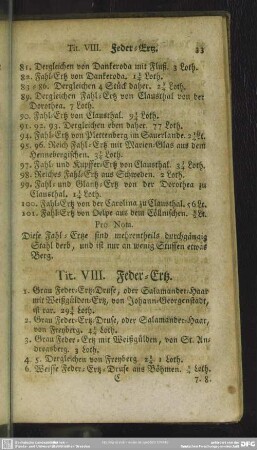 Tit. VIII. Feder-Ertz. 33
81. Dergleichen von Dankeroda mit Fluß. 3 Loth.
82. Fahl-Ertz von Dankeroda. 1¼ Loth.
83 = 86. Dergleichen 4 Stück daher. 2¼ Loth.
89. Dergleichen Fahl-Ertz von Clausthal von der
Dorothea. 7 Loth.
90. Fahl-Ertz von Clausthal. 9¼ Loth.
91. 92. 93. Dergleichen eben daher. 77 Loth.
94. Fahl-Ertz von Plettenberg im Sauerlande.
95. 96. Reich Fahl-Ertz mit Marien-Glas aus dem
Hennebergischen. 3½ Loth.
97. Fahl- und Kupffer-Ertz von Clausthal. 3¼ Loth.
98. Reiches Fahl-Ertz aus Schweden. 2 Loth.
99. Fahl- und Glantz-Ertz von der Dorothea zu
Clausthal. 1¼ Loth.
100. Fahl-Ertz von der Carolina zu Clausthal. 56 Lt.
101. Fahl-Ertz von Oelpe aus dem Cöllnischen.
Pro Nota.
Diese Fahl-Ertze sind mehrentheils durchgängig
Stahl derb, und ist nur an wenig Stuffen etwas
Berg.
Tit. VIII. Feder-Ertz.
1. Grau Feder-Ertz-Druse, oder Salamander-Haar
mit Weißgülden-Ertz, von Johann-Georgenstadt,
ist rar. 29¼ Loth.
2. Grau Feder-Ertz-Druse, oder Salamander-Haar,
von Freyberg. 4¼ Loth.
3. Grau Feder-Ertz mit Weißgülden, von St. An-
dreasberg. 3 Loth.
4. 5. Dergleichen von Freyberg. 2½ Loth.
6. Weisse Feder-Ertz-Druse aus Böhmen. ¼ Loth
C 7. 8.